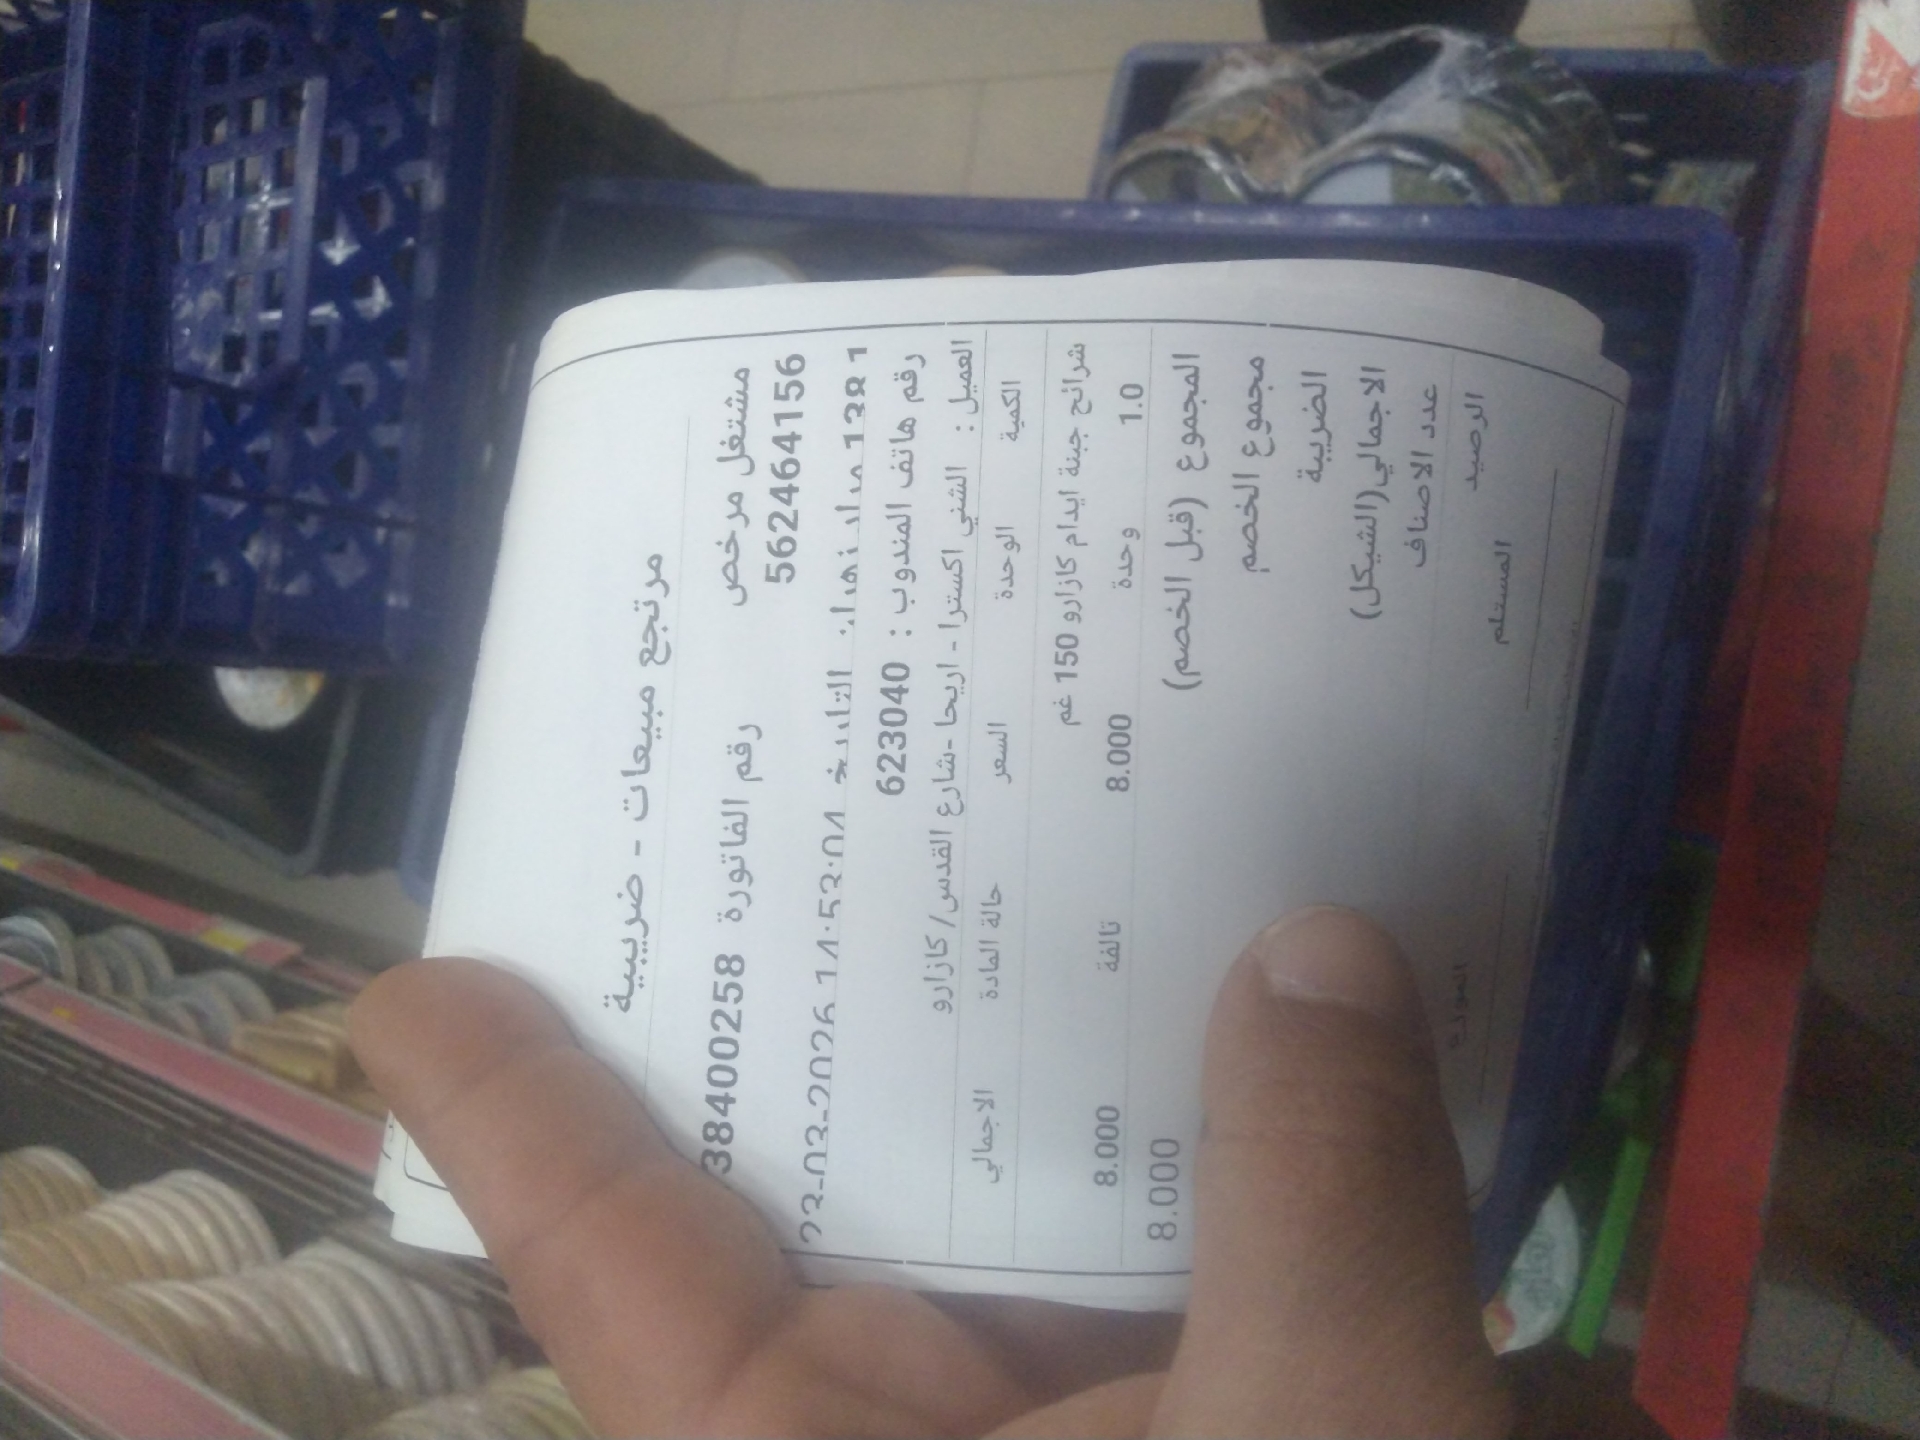 مرتجع مبيعات - ضريبية
مشتغل مرخص رقم الفاتورة 38400258
562464156
التاريخ 23-03-2026 14:53:04
رقم هاتف المندوب : 623040
العميل : الشني اكسترا - اريحا -شارع القدس/كازارو
الكمية الوحدة السعر حالة المادة الاجمالي
شرائح جبنة ايدام كازارو 150 غم
1.0 وحدة 8.000 تالفة 8.000
المجموع (قبل الخصم) 8.000
مجموع الخصم
الضريبة
الاجمالي(الشيكل)
عدد الاصناف
الرصيد
المستلم